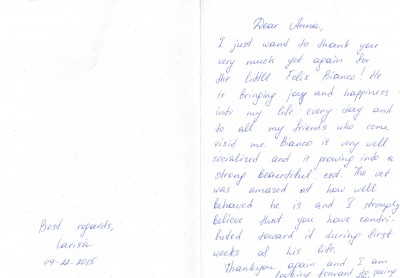 Dear Anna,
I just want to thank you
very much yet again for
the little Felix Bianco! He
is bringing joy and happiness
into my life every day and
to all my friends who come
visit me. Bianco is very well
socialized and is growing into a
strong beautiful cat. The vet
was amazed at how well
behaved he is and I strongly
believe that you have contri-
buted toward it during first
weeks of his life.
Thank you again and I am
looking forward to seeing
Best regards,
Larisa
09-22-2015